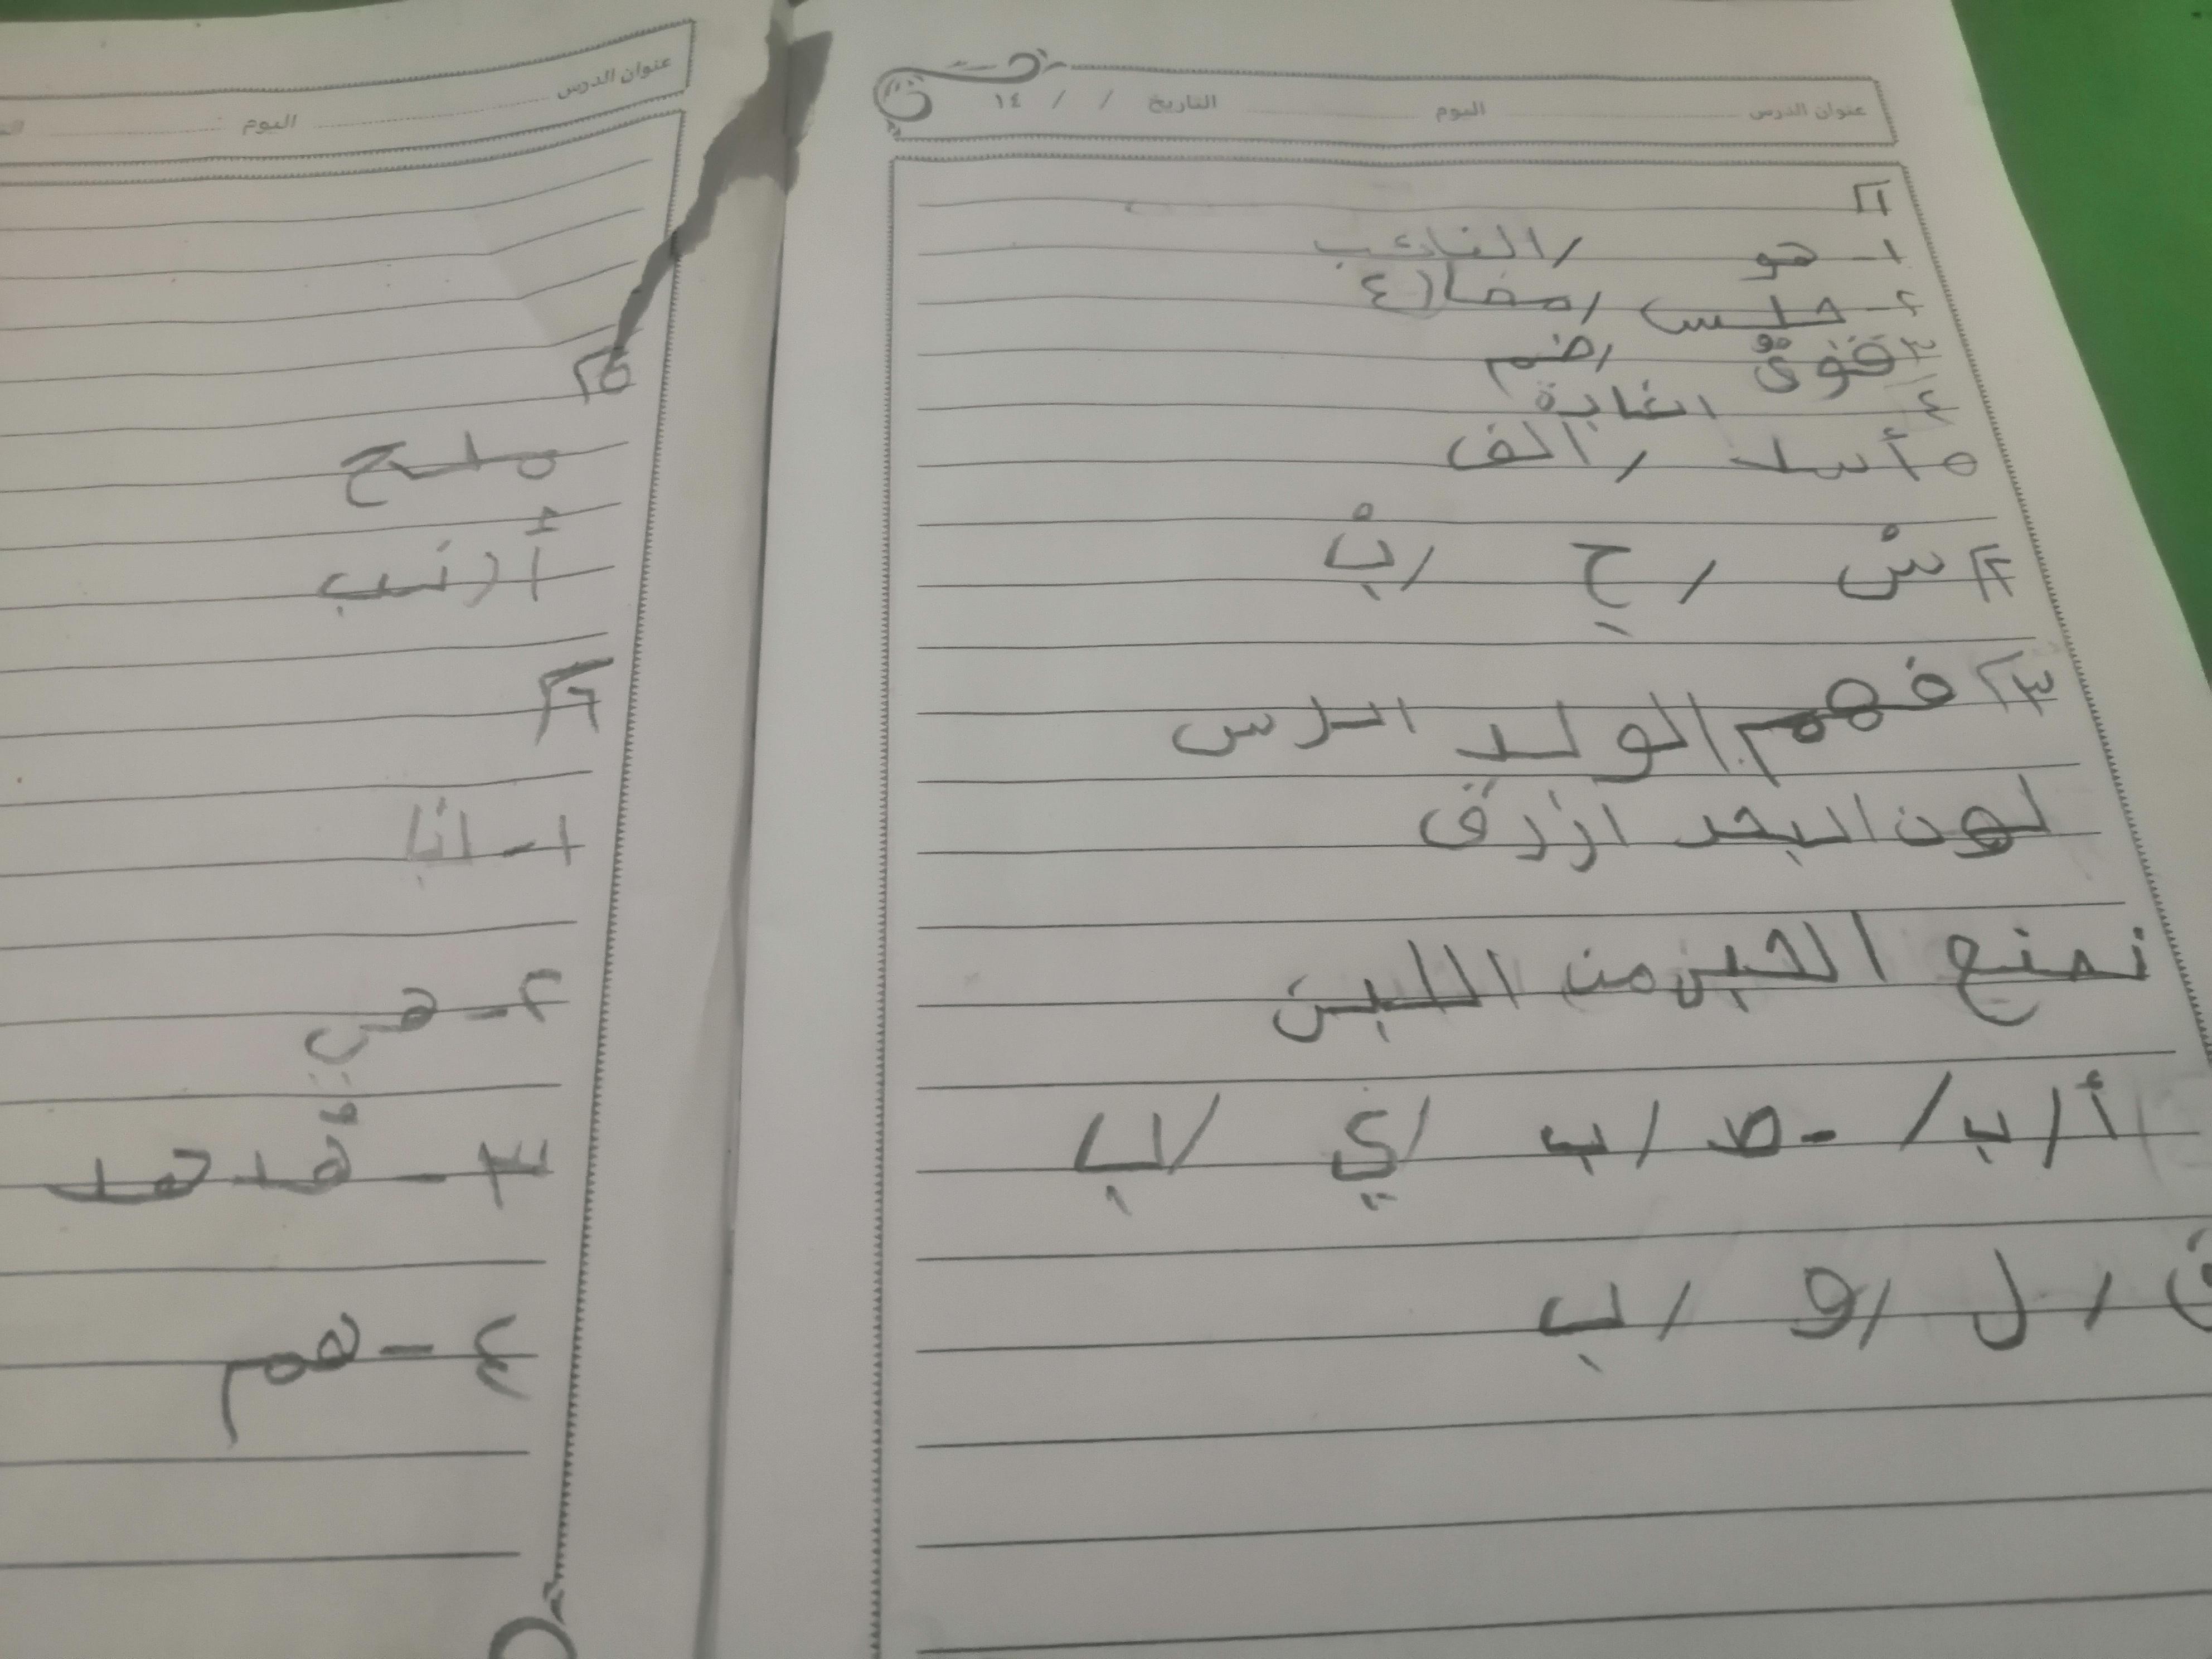 عنوان الدرس اليوم التاريخ / / ١٤
١
١- هو / الغائب
٢- جلس / مضارع
٣ / ضم
٤ الغابة
٥ أسد / ألف
٢ سْ / حِ / بْ
٣ فهم الولد الدرس
لون البحر ازرق
نصنع الجبن من اللبن
أ / ب / ـصـ / ب / ي / ب
ق / ل / و / ب
عنوان الدرس اليوم
٥
ملح
أرنب
٦
١- انا
٢- هي
٣- هدهد
٤- هم